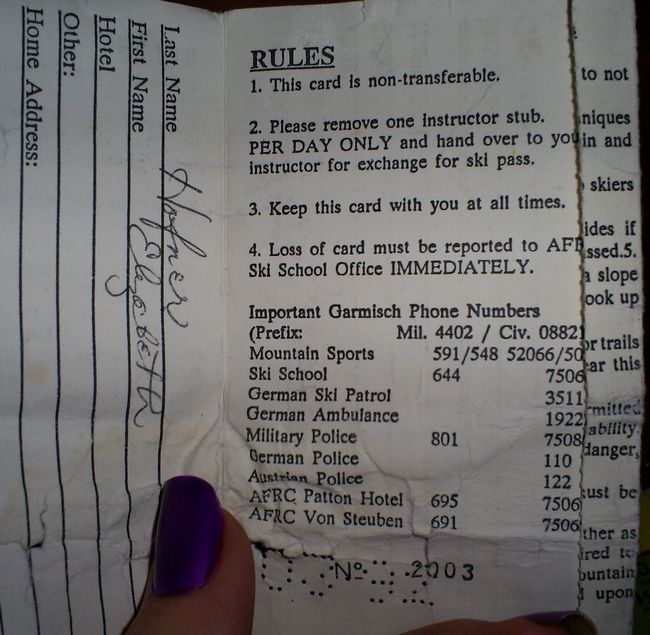 Last Name Hofner
First Name Elizabeth
Hotel
Other:
Home Address:
RULES
1. This card is non-transferable.
2. Please remove one instructor stub.
PER DAY ONLY and hand over to you
instructor for exchange for ski pass.
3. Keep this card with you at all times.
4. Loss of card must be reported to AF
Ski School Office IMMEDIATELY.
Important Garmisch Phone Numbers
(Prefix: Mil. 4402 / Civ. 08821
Mountain Sports 591/548 52066/50
Ski School 644 7506
German Ski Patrol 3511
German Ambulance 1922
Military Police 801 7508
German Police 110
Austrian Police 122
AFRC Patton Hotel 695 7506
AFRC Von Steuben 691 7506
Nº 2003
to not
niques
in and
skiers
ides if
ssed.5.
a slope
ook up
or trails
ear this
rmitted
ability.
danger,
ust be
ther as
ired to
ountain
upon